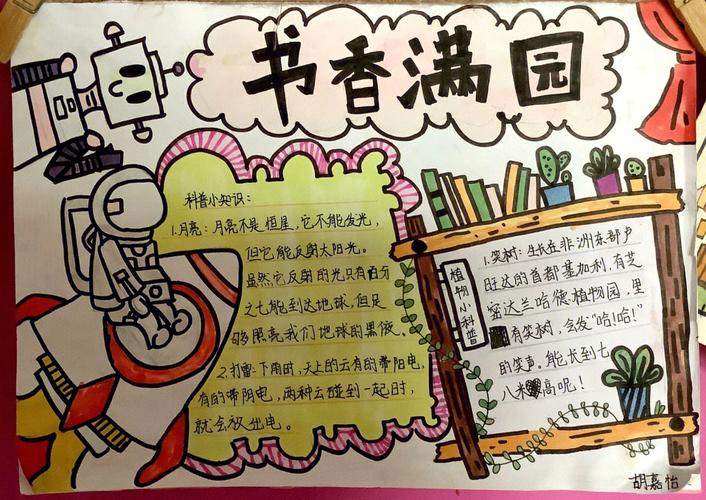 书香满园
科普小知识：
1.月亮：月亮不是恒星，它不能发光，
但它能反射太阳光。
虽然它反射的光只有百分
之七能到达地球，但足
够照亮我们地球的黑夜。
2.打雷：下雨时，天上的云有的带阳电，
有的带阴电，两种云碰到一起时，
就会放出电。
植物小科普
1.笑树：生长在非洲东部卢
旺达的首都基加利，有芝
密达兰哈德植物园，里
有笑树，会发“哈！哈！”
的笑声。能长到七
八米高呢！
胡嘉怡